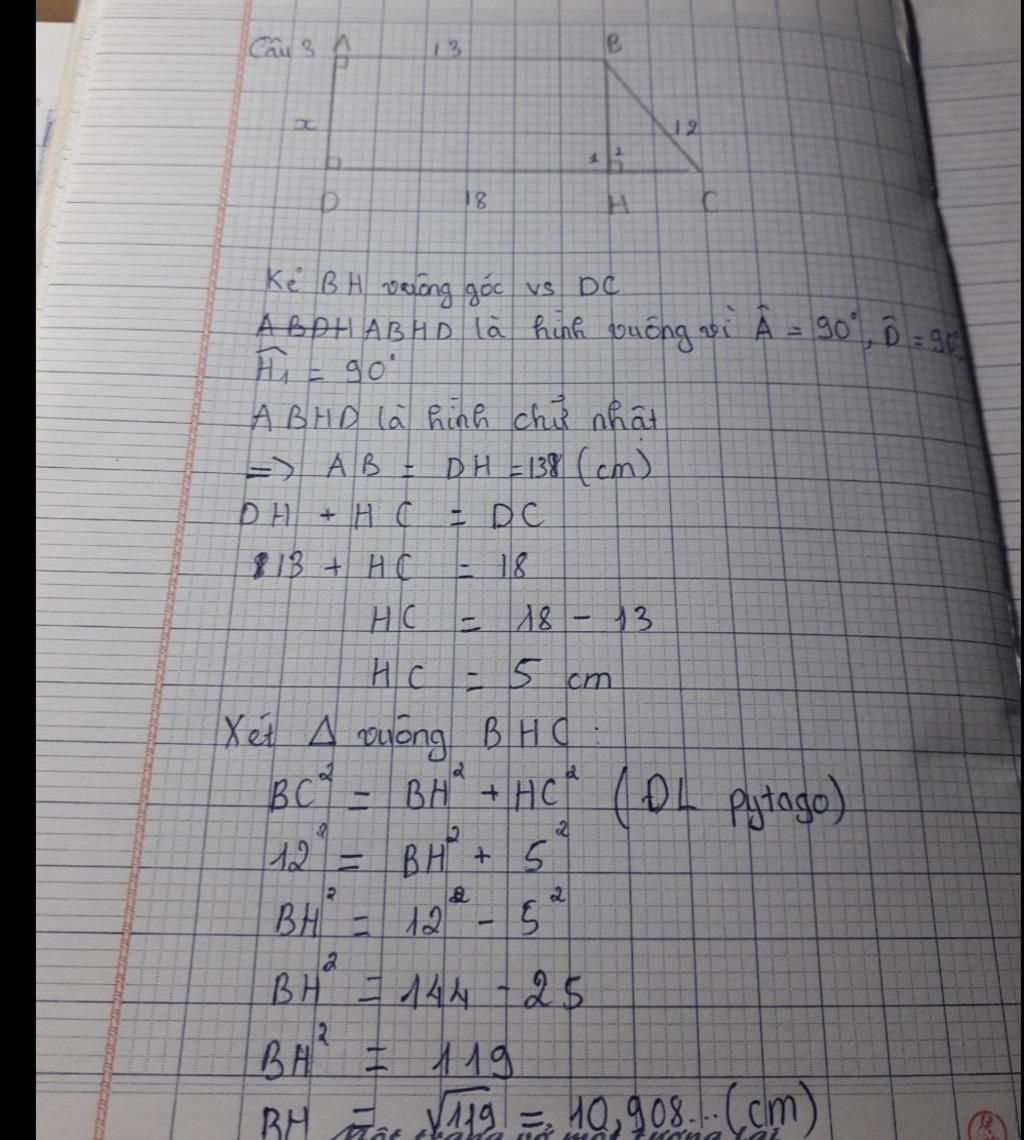 Câu 3 A 13 B
x 12
1 2
D 18 H C
Kẻ BH vuông góc vs DC
ABDH ABHD là hình vuông vì Â = 90°, D̂ = 90°,
Ĥ₁ = 90°
ABHD là hình chữ nhật
=> AB = DH = 13 (cm)
DH + HC = DC
13 + HC = 18
HC = 18 - 13
HC = 5 cm
Xét Δ vuông BHC :
BC² = BH² + HC² (ĐL Pytago)
12² = BH² + 5²
BH² = 12² - 5²
BH² = 144 - 25
BH² = 119
BH = √119 = 10,908... (cm)